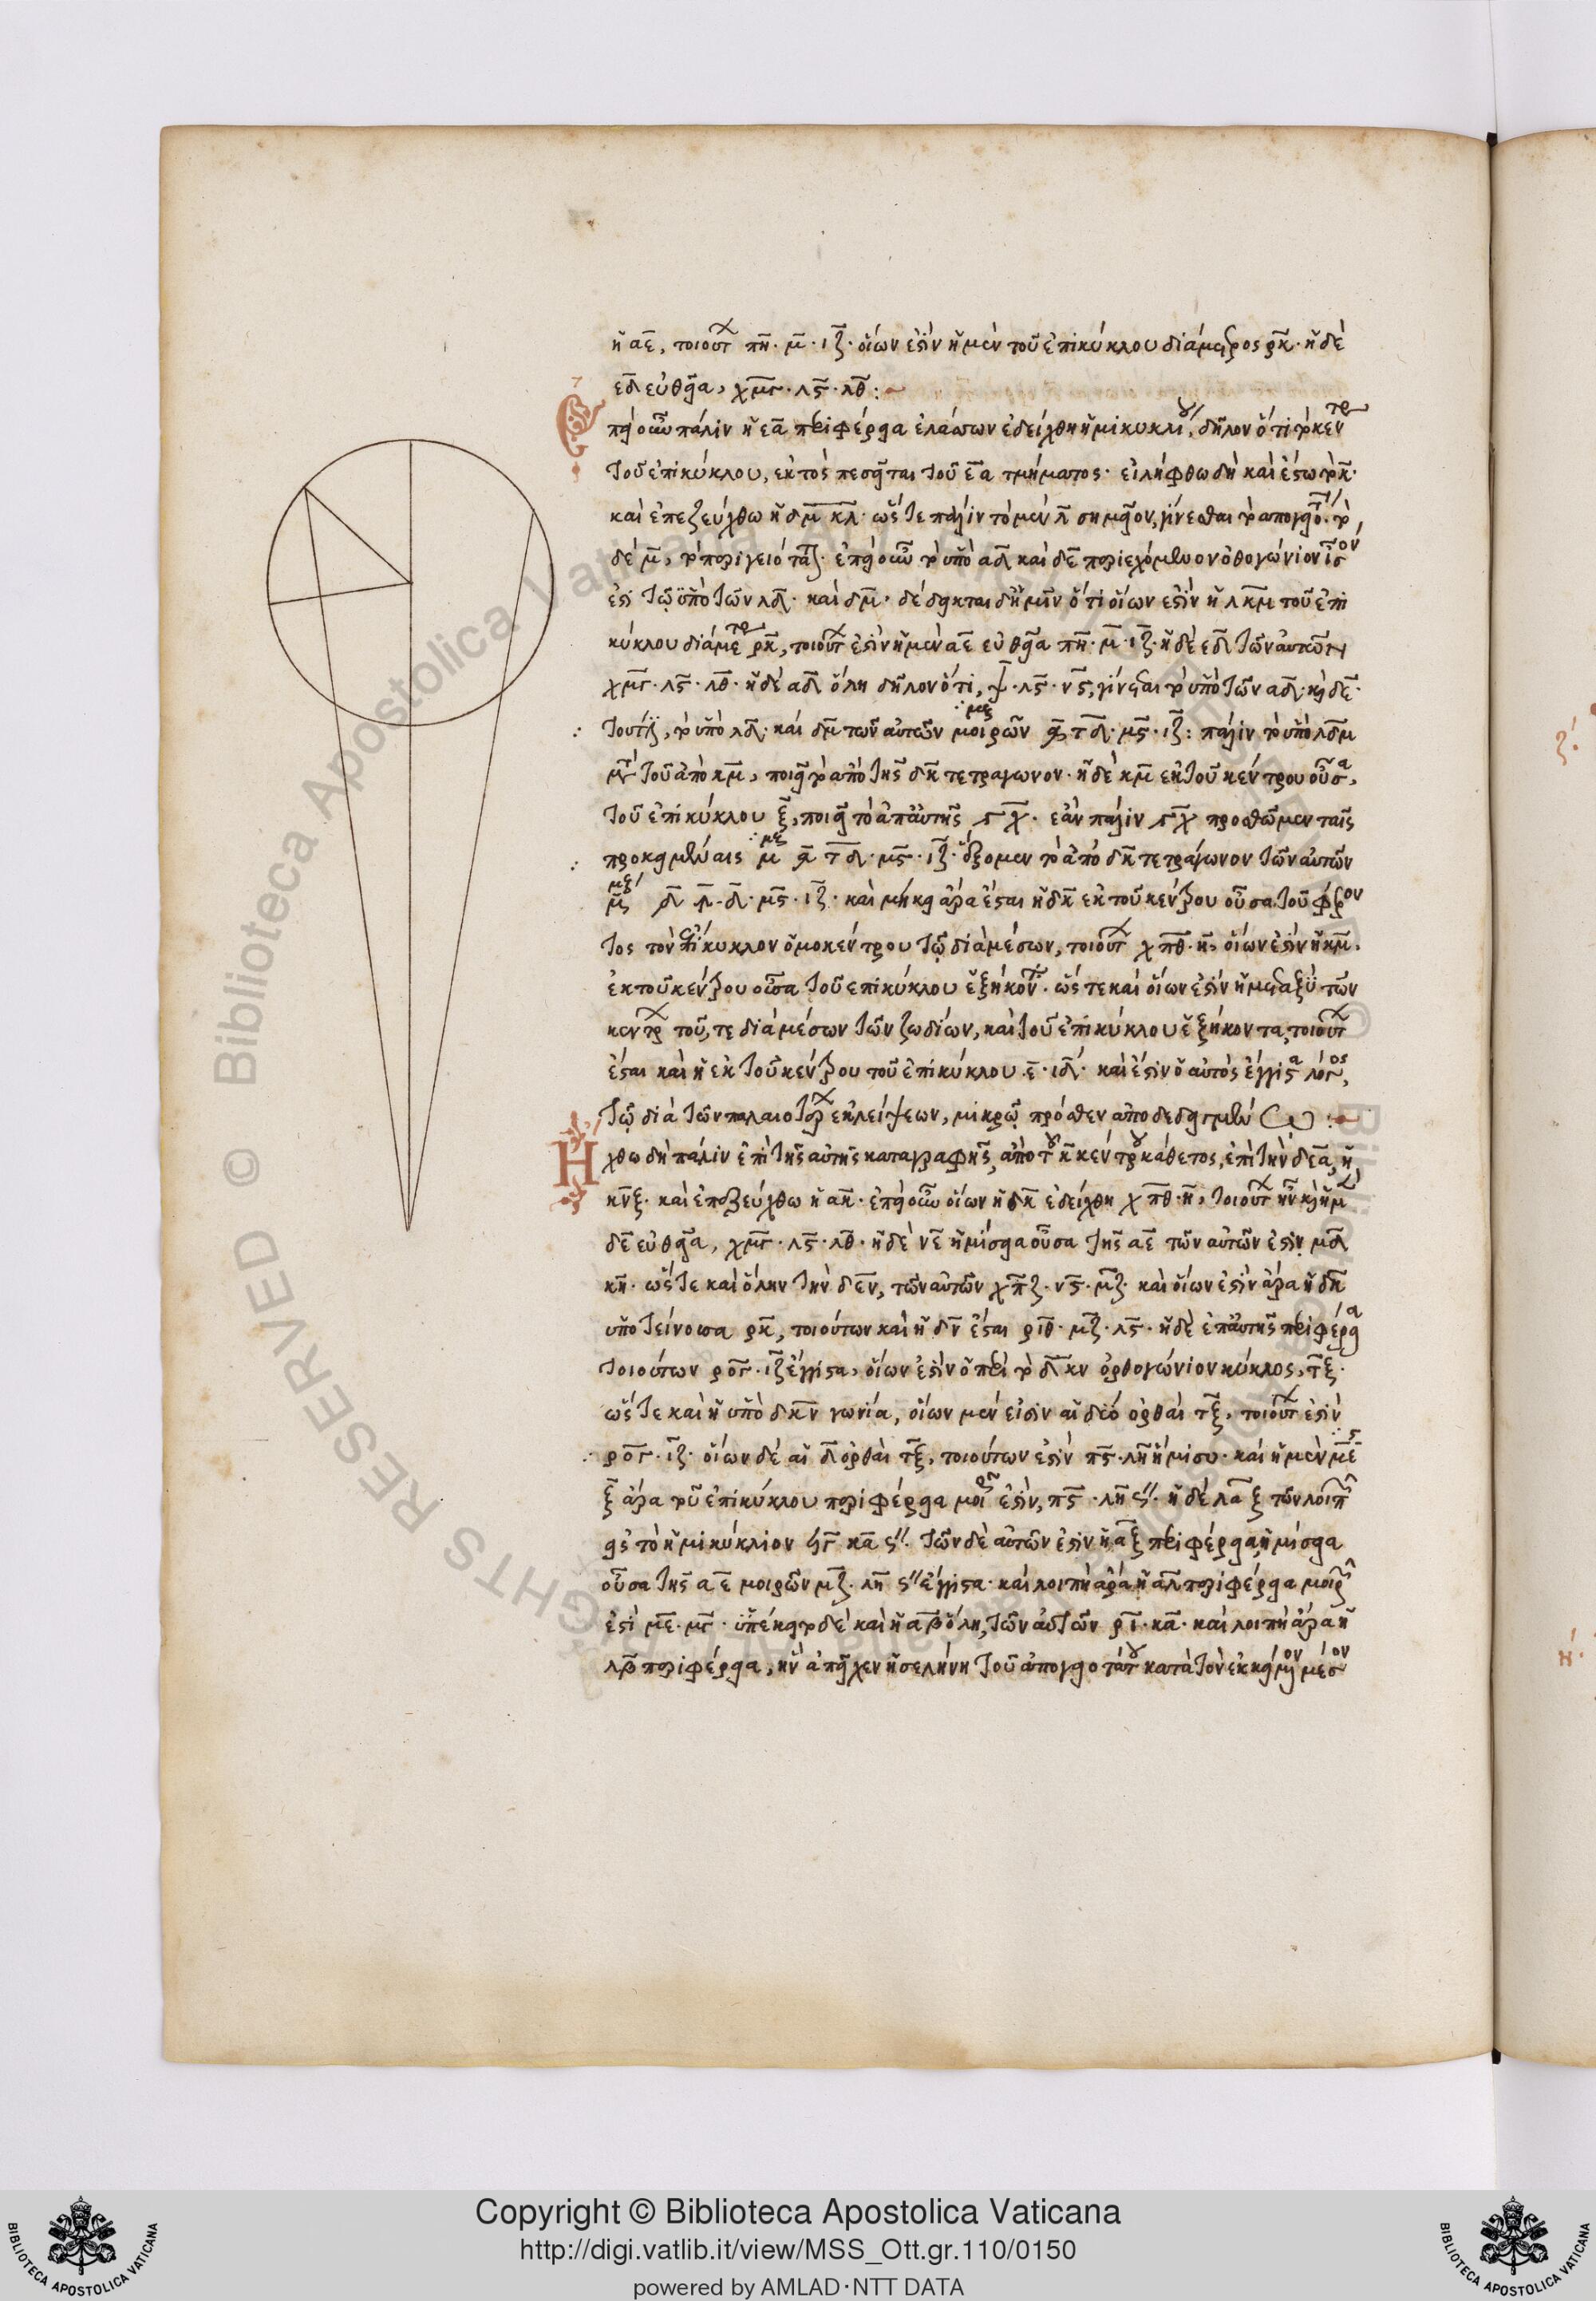 ἡ αε, τοιούτων πη· μ· ιζ· οἵων ἐστὶν ἡ μὲν τοῦ ἐπικύκλου διάμετρος ρκ· ἡ δὲ
εδ εὐθεῖα, χμγ· λς· λθ:
Ἐπεὶ οὖν πάλιν ἡ εα περιφέρεια ἐλάσσων ἐδείχθη ἡμικυκλίου, δῆλον ὅτι τὸ κέντρον
τοῦ ἐπικύκλου, ἐκτὸς πεσεῖται τοῦ εα τμήματος· εἰλήφθω δὴ καὶ ἔστω τὸ κ·
καὶ ἐπεζεύχθω ἡ δμ κλ· ὥστε πάλιν τὸ μὲν λ σημεῖον, γίνεσθαι τὸ ἀπόγειον· τὸ
δὲ μ, τὸ περιγειότατον· ἐπεὶ οὖν τὸ ὑπὸ αδ καὶ δε περιεχόμενον ὀρθογώνιον ἴσον
ἐστὶ τῷ ὑπὸ τῶν λδ· καὶ δμ· δέδεικται δ' ἡμῖν ὅτι οἵων ἐστὶν ἡ λκμ τοῦ ἐπι
κύκλου διάμετρος ρκ, τοιούτων ἐστὶν ἡ μὲν αε εὐθεῖα πη· μ· ιζ· ἡ δὲ εδ τῶν αὐτῶν
χμγ· λς· λθ· ἡ δὲ αδ ὅλη δηλονότι, ψ· λς· νς, γίνεται τὸ ὑπὸ τῶν αδ· καὶ δε·
τουτέστι, τὸ ὑπὸ λδ· καὶ δμ τῶν αὐτῶν μοιρῶν τδ· μς· ιζ: πάλιν τὸ ὑπὸ λδμ
μετὰ τοῦ ἀπὸ κμ, ποιεῖ τὸ ἀπὸ τῆς δκ τετράγωνον· ἡ δὲ κμ ἐκ τοῦ κέντρου οὖσα,
τοῦ ἐπικύκλου ξ, ποιεῖ τὸ ἀπ' αὐτῆς γχ· ἐὰν πάλιν γχ προσθῶμεν ταῖς
προκειμέναις μ τδ· μς· ιζ· ἕξομεν τὸ ἀπὸ δκ τετράγωνον τῶν αὐτῶν
μ δ· μς· ιζ· καὶ μήκει ἄρα ἔσται ἡ δκ ἐκ τοῦ κέντρου οὖσα τοῦ φέρον
τος τὸν ἐπίκυκλον ὁμοκέντρου τῷ διὰ μέσων, τοιούτων χπθ· η, οἵων ἐστὶν ἡ κμ,
ἐκ τοῦ κέντρου οὖσα τοῦ ἐπικύκλου ἑξήκοντα· ὥστε καὶ οἵων ἐστὶν ἡ μεταξὺ τῶν
κέντρων τοῦ, τε διὰ μέσων τῶν ζωδίων, καὶ τοῦ ἐπικύκλου ἑξήκοντα, τοιούτων
ἔσται καὶ ἡ ἐκ τοῦ κέντρου τοῦ ἐπικύκλου ε· ιδ· καὶ ἔστιν ὁ αὐτὸς ἔγγιστα λόγος,
τῷ διὰ τῶν παλαιοτέρων ἐκλείψεων, μικρῷ πρόσθεν ἀποδεδειγμένῳ
Ἤχθω δὴ πάλιν ἐπὶ τῆς αὐτῆς καταγραφῆς, ἀπὸ τοῦ κ κέντρου κάθετος, ἐπὶ τὴν δεα, ἡ
κνξ· καὶ ἐπεζεύχθω ἡ ακ· ἐπεὶ οὖν οἵων ἡ δκ ἐδείχθη χπθ· η, τοιούτων ἦν καὶ ἡ μὲν
δε εὐθεῖα, χμγ· λς· λθ· ἡ δὲ νε ἡμίσεια οὖσα τῆς αε τῶν αὐτῶν ἐστὶν μδ
κη· ὥστε καὶ ὅλην τὴν δεν, τῶν αὐτῶν χπζ· νς· μζ· καὶ οἵων ἐστὶν ἄρα ἡ δκ
ὑποτείνουσα ρκ, τοιούτων καὶ ἡ δν ἔσται ριθ· μζ· λς· ἡ δὲ ἐπ' αὐτῆς περιφέρεια
τοιούτων ρογ· ιζ ἔγγιστα, οἵων ἐστὶν ὁ περὶ τὸ δκν ὀρθογώνιον κύκλος, τξ·
ὥστε καὶ ἡ ὑπὸ δκν γωνία, οἵων μέν εἰσιν αἱ δύο ὀρθαὶ τξ, τοιούτων ἐστὶν
ρογ· ιζ· οἵων δὲ αἱ δ ὀρθαὶ τξ, τοιούτων ἐστὶν πς· λη ἥμισυ· καὶ ἡ μὲν με
ξ ἄρα τοῦ ἐπικύκλου περιφέρεια μοιρῶν ἐστὶν, πς· λη ς''· ἡ δὲ λα ξ τῶν λοιπῶν
εἰς τὸ ἡμικύκλιον ϟγ κα ς''· τῶν δὲ αὐτῶν ἐστιν ἡ αξ περιφέρεια, ἡμίσεια
οὖσα τῆς αε μοιρῶν μζ· λη ς'' ἔγγιστα· καὶ λοιπὴ ἄρα ἡ αλ περιφέρεια μοιρῶν
ἐστὶ με· μγ· ὑπέκειτο δὲ καὶ ἡ αβ ὅλη, τῶν αὐτῶν ρι· κα· καὶ λοιπὴ ἄρα ἡ
λβ περιφέρεια, ἣν ἀπεῖχεν ἡ σελήνη τοῦ ἀπογειοτάτου κατὰ τὸν ἐκκείμενον μέσον
Copyright © Biblioteca Apostolica Vaticana
http://digi.vatlib.it/view/MSS_Ott.gr.110/0150
powered by AMLAD·NTT DATA
BIBLIOTECA APOSTOLICA VATICANA
BIBLIOTECA APOSTOLICA VATICANA